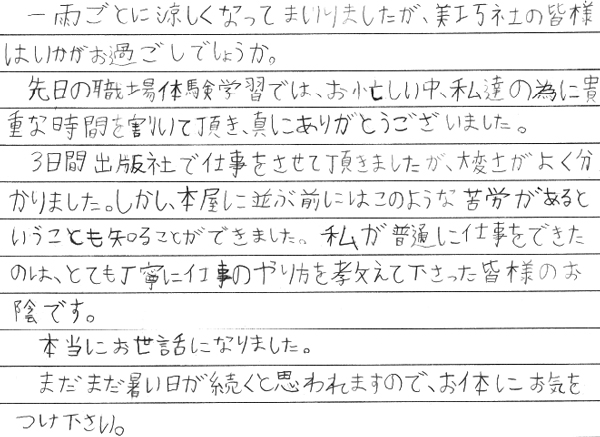 一雨ごとに涼しくなってまいりましたが、美巧社の皆様
はいかがお過ごしでしょうか。
先日の職場体験学習では、お忙しい中、私達の為に貴
重な時間を割いて頂き、真にありがとうございました。
3日間出版社で仕事をさせて頂きましたが、大変さがよく分
かりました。しかし、本屋に並ぶ前にはこのような苦労があると
いうことも知ることができました。私が普通に仕事をできた
のは、とても丁寧に仕事のやり方を教えて下さった皆様のお
陰です。
本当にお世話になりました。
まだまだ暑い日が続くと思われますので、お体にお気を
つけ下さい。